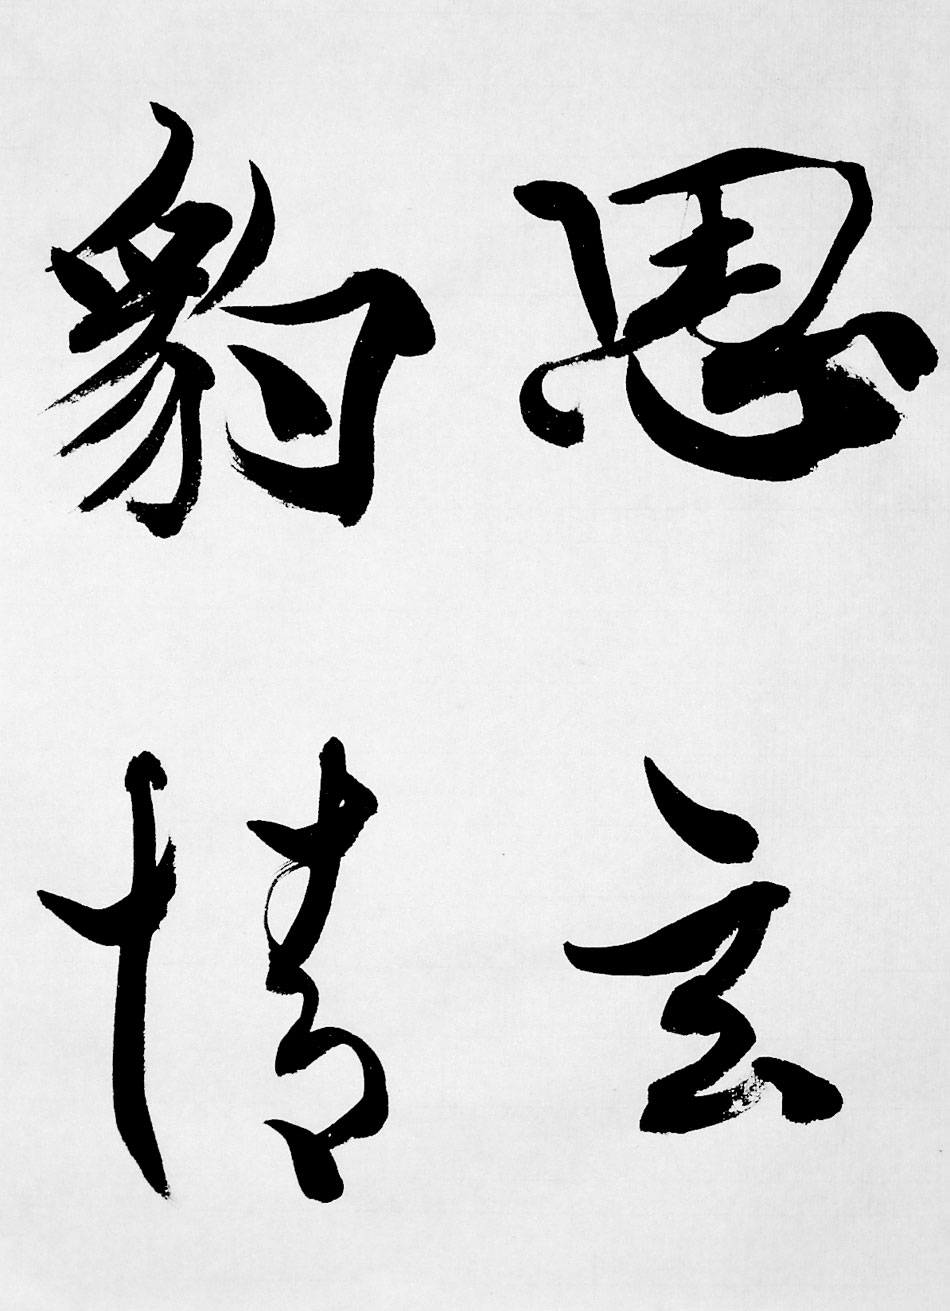 思玄
豹情